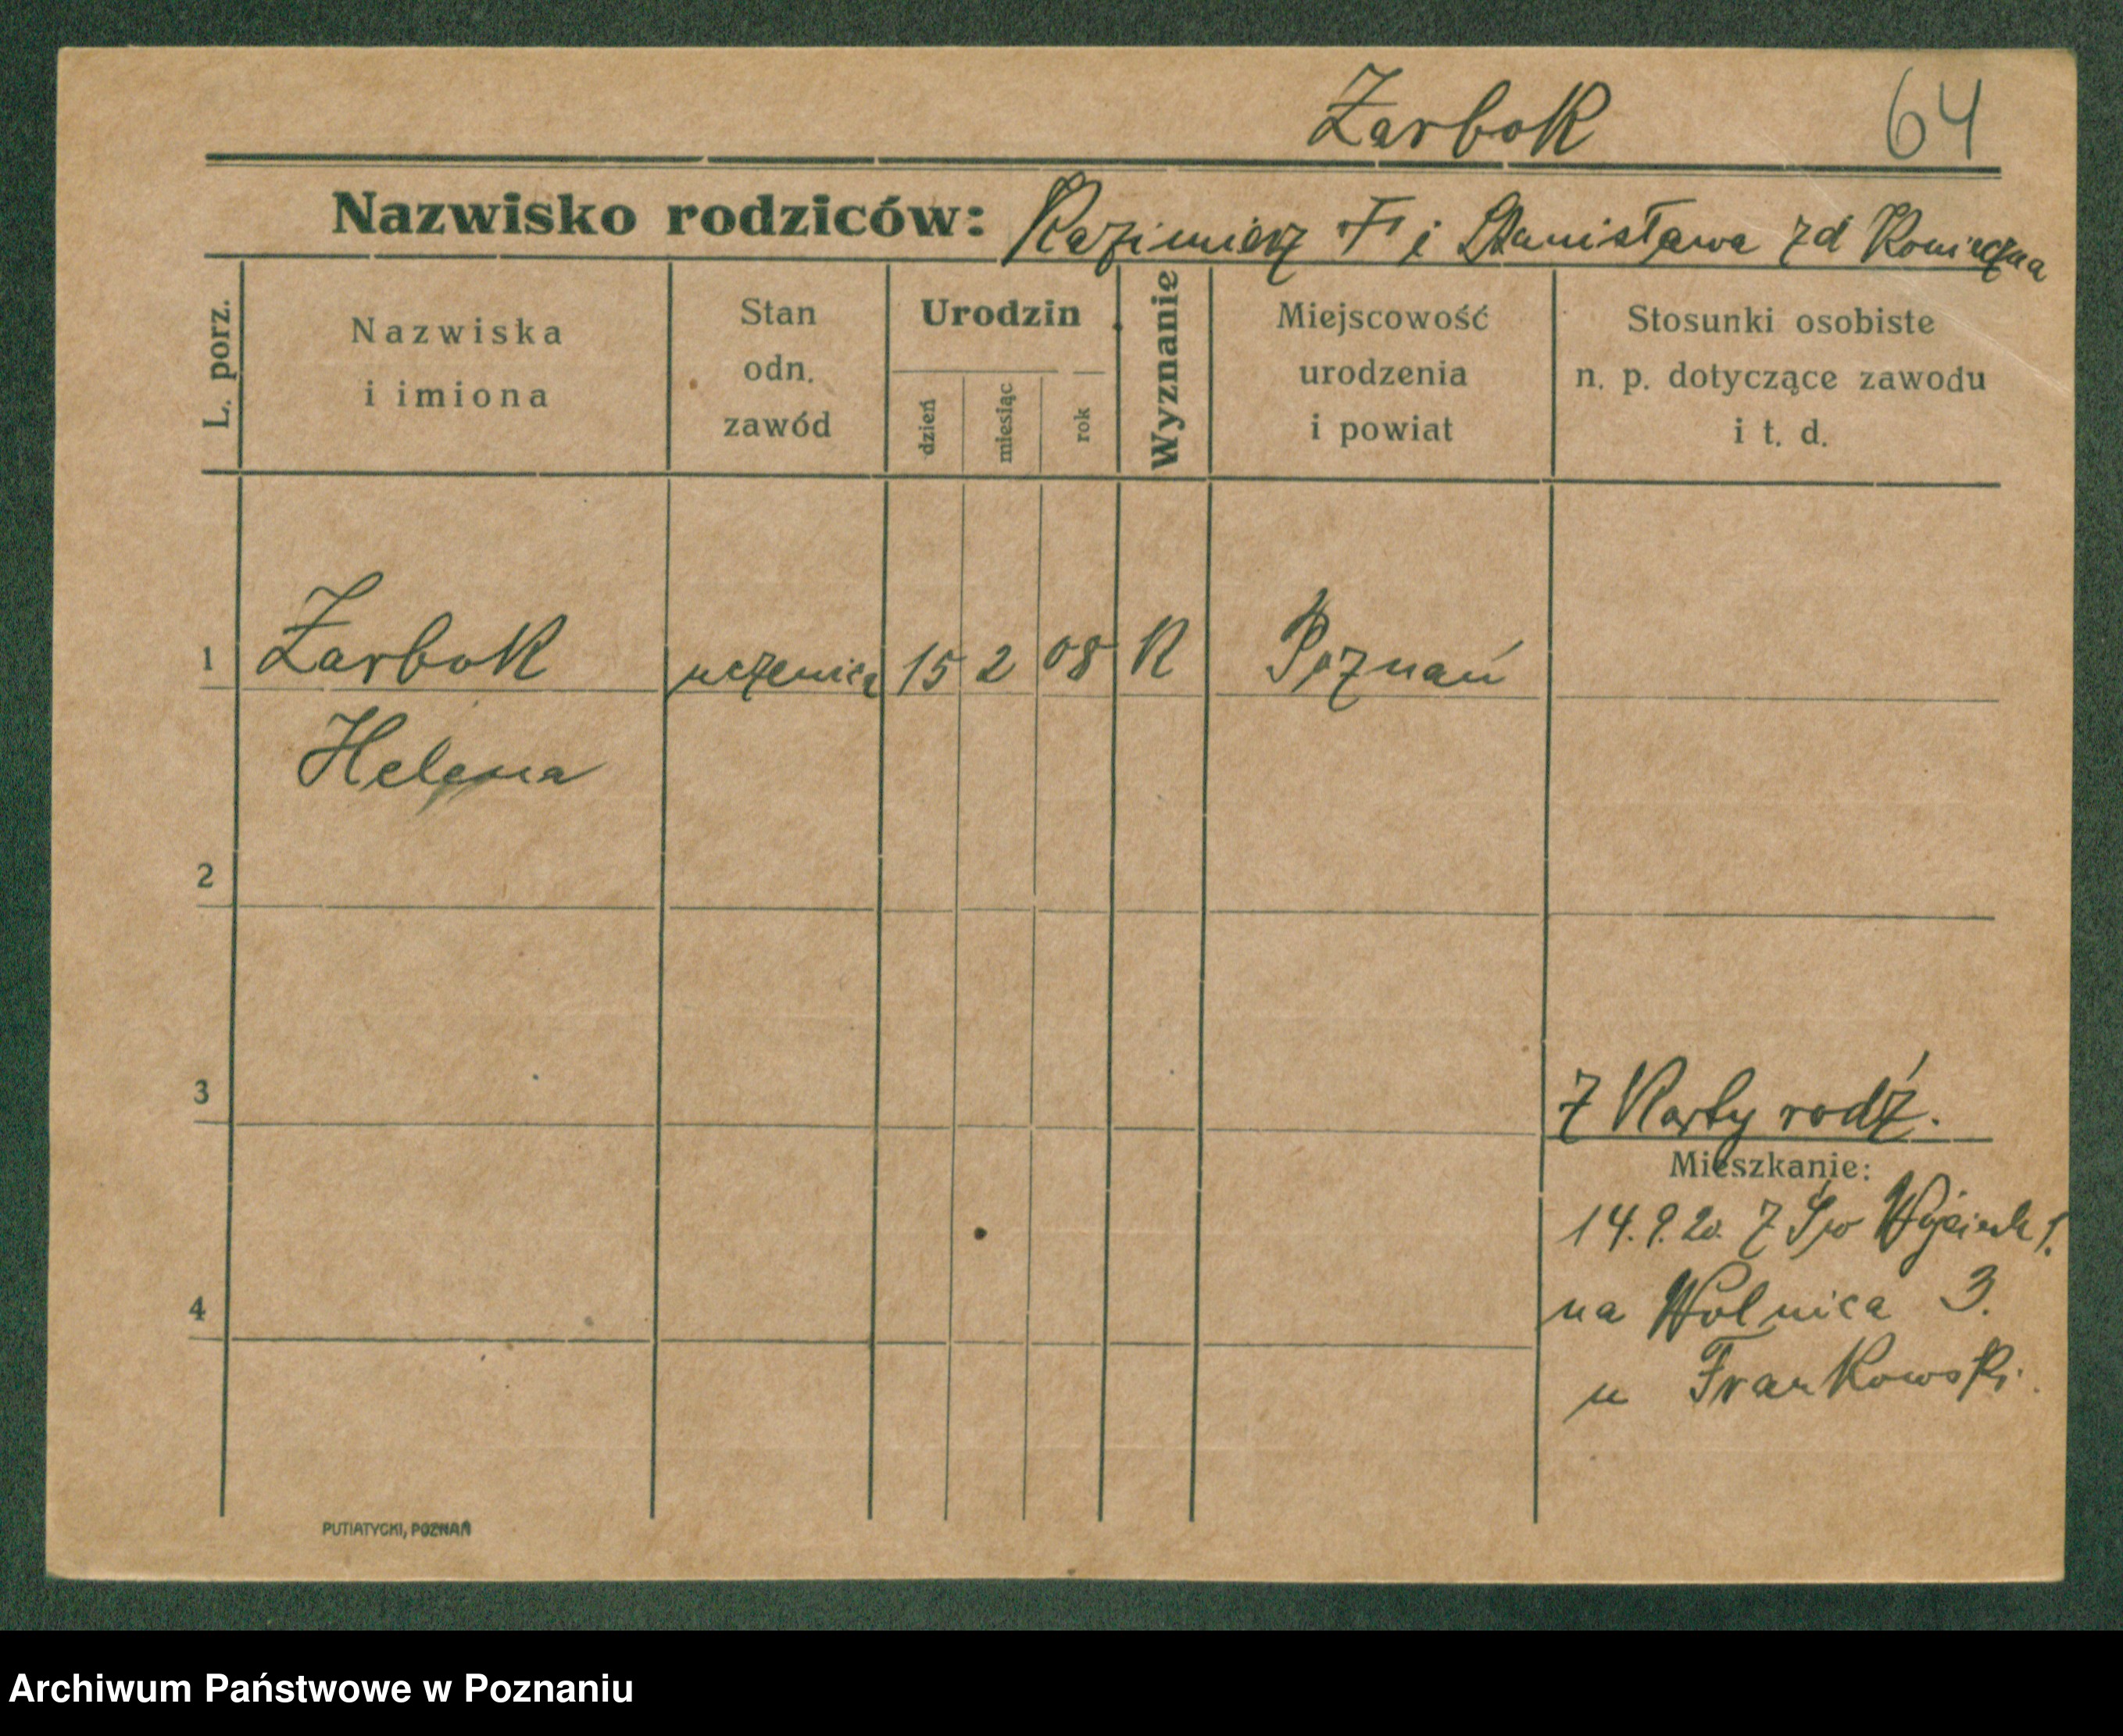 Żarbok 64
Nazwisko rodziców: Kazimierz † i Stanisława zd Konieczna
L. porz.
Nazwiska
i imiona
Stan
odn.
zawód
Urodzin
dzień
miesiąc
rok
Wyznanie
Miejscowość
urodzenia
i powiat
Stosunki osobiste
n. p. dotyczące zawodu
i t. d.
1 Żarbok uczenica 15 2 08 K Poznań
Helena
2
3
z Karty rodź.
Mieszkanie:
14.9.20. z Św Wojciech 1.
4
na Wolnica 3.
u Frankowski.
PUTIATYCKI, POZNAŃ
Archiwum Państwowe w Poznaniu